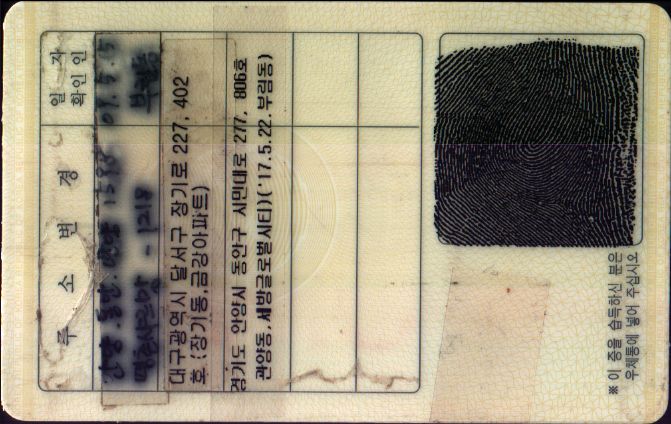 주 소 변 경 일 자
확인인
07.5.5
-1218
대구광역시 달서구 장기로 227, 402
호 (장기동,금강아파트)
경기도 안양시 동안구 시민대로 277, 806호
관양동,세방글로벌시티)('17.5.22.부림동)
※ 이 증을 습득하신 분은
우체통에 넣어 주십시오